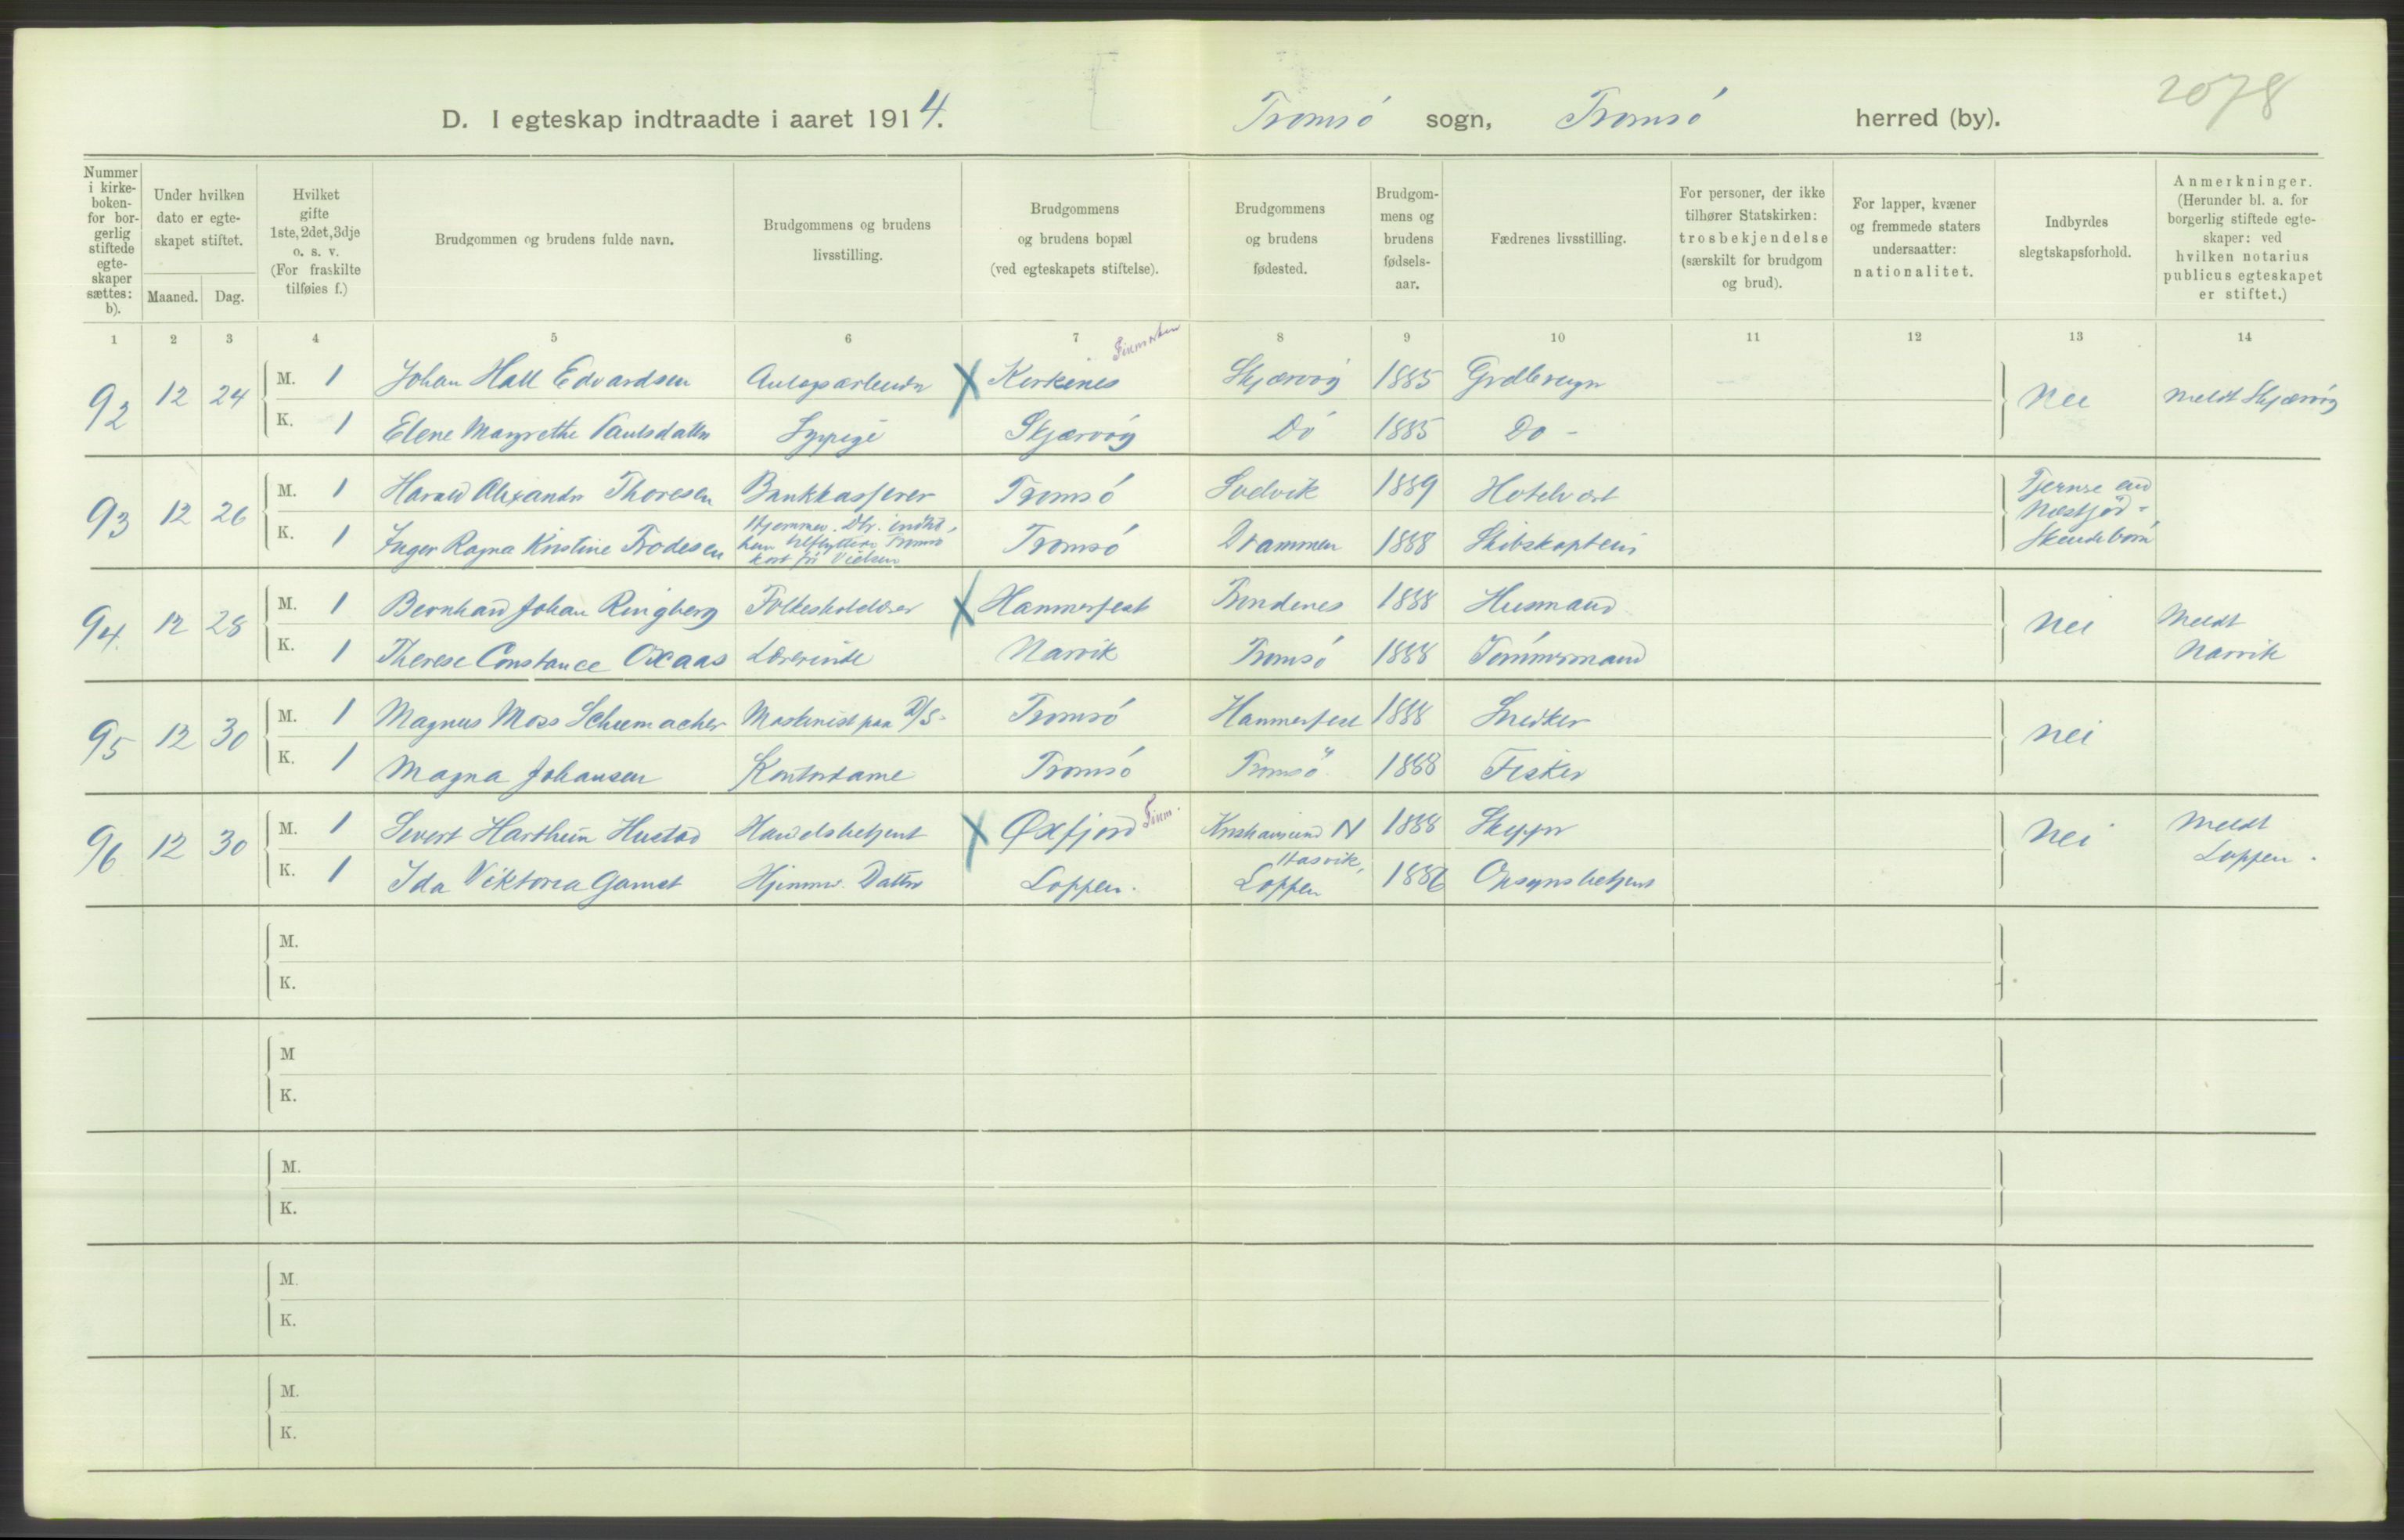 2078
D. I egteskap indtraadte i aaret 1914. Tromsö sogn, Tromsö herred (by).
Nummer i kirke-boken- for bor-gerlig stiftede egte-skaper sættes: b).
Under hvilken dato er egte-skapet stiftet.
Maaned. Dag.
Hvilket gifte 1ste, 2det, 3dje o. s. v. (For fraskilte tilføies f.)
Brudgommen og brudens fulde navn.
Brudgommens og brudens livsstilling.
Brudgommens og brudens bopæl (ved egteskapets stiftelse).
Brudgommens og brudens fødested.
Brudgom-mens og brudens fødsels-aar.
Fædrenes livsstilling.
For personer, der ikke tilhører Statskirken: trosbekjendelse (særskilt for brudgom og brud).
For lapper, kvæner og fremmede staters undersaatter: nationalitet.
Indbyrdes slegtskapsforhold.
Anmerkninger. (Herunder bl. a. for borgerlig stiftede egte-skaper: ved hvilken notarius publicus egteskapet er stiftet.)
1 2 3 4 5 6 7 8 9 10 11 12 13 14
92 12 24 M. 1 Johan Hall Edvardsen Anlægsarbeider X Kirkenes Skjærvöy 1885 Grdbruger Nei Meldt Skjærvöy
K. 1 Elene Margrethe Paulsdatter Skjærvöy Do 1885 Do -
93 12 26 M. 1 Harald Alexander Thoresen Bankkasserer Tromsö Solvik 1889 Hotelvert Fjernere end Næstsöd-Skendebörn
K. 1 Inger Ragna Kristine Frodesen Hjemmev. Dtr. indtil hun tilflyttede Tromsö kort för Vielsen Tromsö Drammen 1888 Skibskaptein
94. 12 28 M. 1 Bernhard Johan Ringberg Folkeskolelærer X Hammerfest Trondenes 1888 Husmand Nei Meldt Narvik
K. 1 Therese Constance Oxaas Lærerinde Narvik Tromsö 1888 Tömmermand
95 12 30 M. 1 Magnus Moss Schumacher Maskinist paa D/S. Tromsö Hammerfest 1888 Snedker Nei
K. 1 Magna Johansen Kontordame Tromsö Tromsö 1888 Fisker
96 12 30 M. 1 Sivert Hartheim Hustad Handelsbetjent X Øxfjord Finm. Kristiansund N 1888 Skipper Nei Meldt Loppen.
K. 1 Ida Viktoria Gamst Hjemmev. Datter Loppen. Hasvik, Loppen 1886 Opsynsbetjent
M.
K.
M
K.
M.
K.
M.
K.
M.
K.